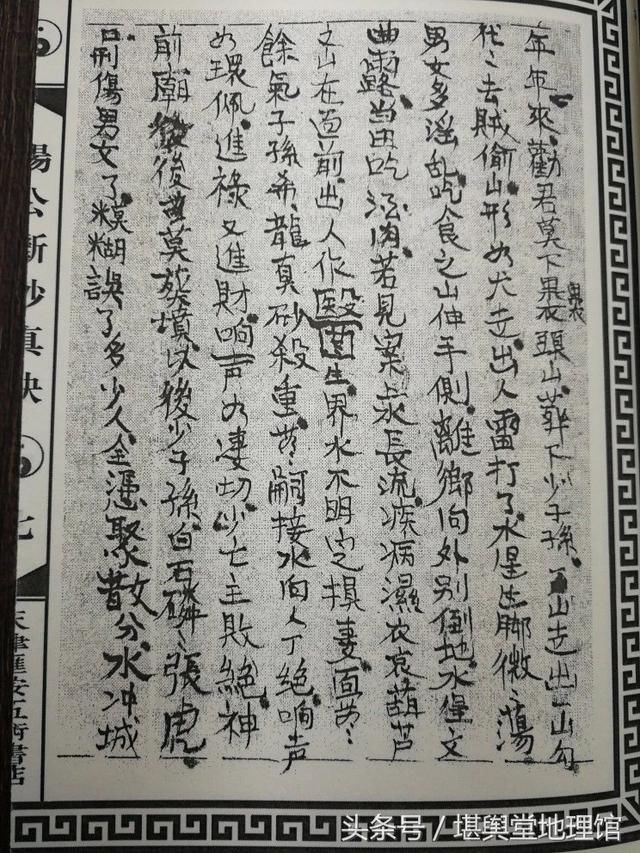 年年來勸君莫下裹頭山葬下少子孫一山走出一山勾
裹
代々去賊偷山形如犬走出人雷打了水星生脚微々蕩
男女多淫乱吃食之山伸手側離鄉向外别倒地水星文
曲露当田吃泒肉若見案水長流疾病濕衣哀葫芦
之山在邉前出人作醫生界水不明定損妻面前
餘氣子孫希龍真砂殺重々嗣接水向人丁絶响声
如環佩進禄又進財响声如凄切少亡主敗絶神
前廟後莫葬墳以後少子孫白石磷々張虎
口刑傷男女了糢糊誤了多少人全憑聚散分水冲城
楊公斷砂真訣
七
天津
書店
头条号／堪舆堂地理馆